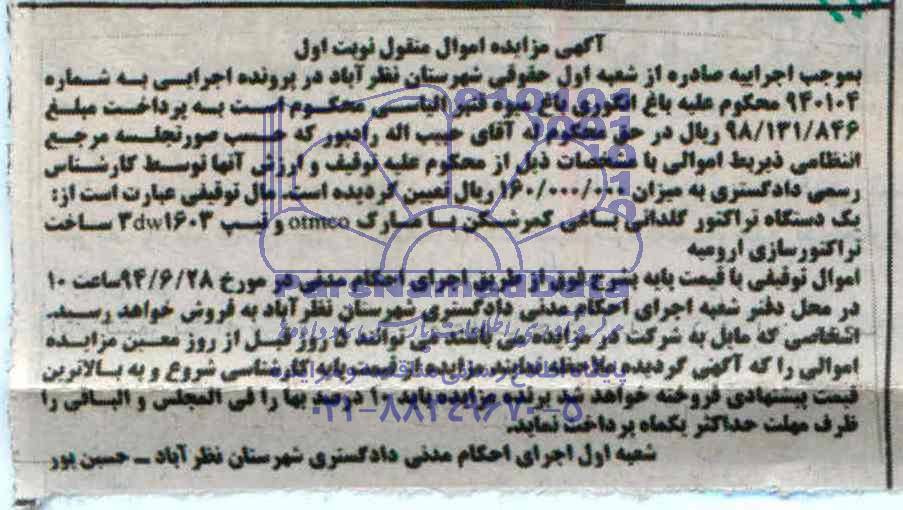 آگهی مزایده اموال منقول نوبت اول
بموجب اجراییه صادره از شعبه اول حقوقی شهرستان نظرآباد در پرونده اجرایی به شماره
۹۴۰۱۰۴ محکوم علیه باغ انگوری باغ میوه قنبر الیاسی محکوم است به پرداخت مبلغ
۹۸/۱۳۱/۸۴۶ ریال در حق محکوم له آقای حبیب اله رادپور که حسب صورتجلسه مرجع
انتظامی ذیربط اموالی با مشخصات ذیل از محکوم علیه توقیف و ارزش آنها توسط کارشناس
رسمی دادگستری به میزان ۱۶۰/۰۰۰/۰۰۰ ریال تعیین گردیده است. مال توقیفی عبارت است از:
یک دستگاه تراکتور گلدانی باغی کمرشکن با مارک otmco و تیپ ۳dw۱۶۰۳ ساخت
تراکتورسازی ارومیه
اموال توقیفی با قیمت پایه بشرح فوق از طریق اجرای احکام مدنی در مورخ ۹۴/۶/۲۸ ساعت ۱۰
در محل دفتر شعبه اجرای احکام مدنی دادگستری شهرستان نظرآباد به فروش خواهد رسید.
اشخاصی که مایل به شرکت در مزایده می باشند می توانند ۵ روز قبل از روز معین مزایده
اموالی را که آگهی گردیده ملاحظه نمایند. مزایده از قیمت پایه کارشناسی شروع و به بالاترین
قیمت پیشنهادی فروخته خواهد شد برنده مزایده باید ۱۰ درصد بها را فی المجلس و الباقی را
ظرف مهلت حداکثر یکماه پرداخت نماید.
شعبه اول اجرای احکام مدنی دادگستری شهرستان نظرآباد ـ حسین پور
۰۲۱-۸۸۳۴۹۶۷۰-۵